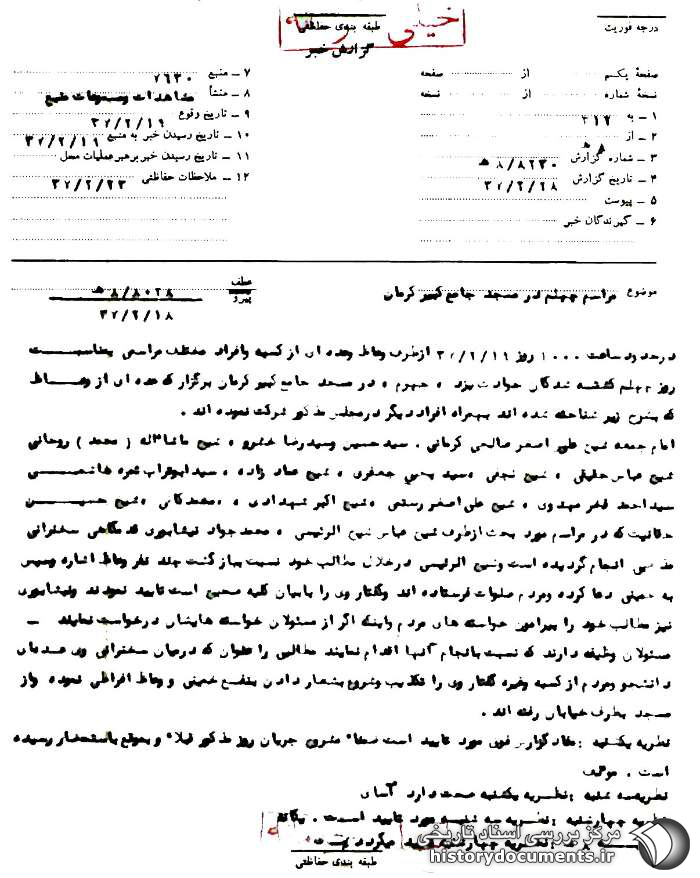 خیلی
طبقه بندی حفاظتی
گزارش خبر
درجه فوریت
صفحهٔ یکم از صفحه
نسخهٔ شماره از نسخه
۱ ـ به ۳۱۲
۲ ـ از
۳ ـ شماره گزارش ۸/۸۲۳۰ ه
۴ ـ تاریخ گزارش ۳۷/۲/۲۸
۵ ـ پیوست
۶ ـ گیرندگان خبر
۷ ـ منبع ۷۶۳۰
۸ ـ منشأ مشاهدات و مسموعات منبع
۹ ـ تاریخ وقوع ۳۷/۲/۱۹
۱۰ ـ تاریخ رسیدن خبر به منبع ۳۷/۲/۱۹
۱۱ ـ تاریخ رسیدن خبر برهبر عملیات محل
۱۲ ـ ملاحظات حفاظتی ۳۷/۲/۲۳
موضوع مراسم چهلم در مسجد جامع کبیر کرمان
عطف
پیرو
۸/۸۰۲۸ ه
۳۷/۲/۱۸
در حدود ساعت ۱۰۰۰ روز ۳۷/۲/۱۹ از طرف وعاظ و عده ای از کسبه و افراد مختلف مراسمی بمناسبت
روز چهلم کشته شدگان حوادث یزد و جهرم و در مسجد جامع کبیر کرمان برگزار که عده ای از وعاظ
که بشرح زیر شناخته شده اند بهمراه افراد دیگر در مجلس مذکور شرکت نموده اند .
امام جمعه شیخ علی اصغر صالحی کرمانی . سید حسین و سید رضا خسرو و شیخ ماشااله ( محمد ) روحانی
شیخ عباس حقیقی و شیخ نجفی و سید یحیی جعفری و شیخ عماد زاده و سید ابوتراب شعره هاشمی
سید احمد فخر مهدوی و شیخ علی اصغر رستمی و شیخ اکبر شهدادی و محمد کاس و شیخ حسین
حقانیت که در مراسم مورد بحث از طرف شیخ عباس شیخ الرئیسی و محمد جواد نیشابوری قدمگاهی سخنرانی
مذهبی انجام گردیده است و شیخ الرئیسی در خلال مطالب خود نسبت بباز گشت چند نفر وعاظ اشاره و سپس
به خمینی دعا کرده و مردم صلوات فرستاده اند و گفتار وی را با بیان کلیه صحیح است تایید نمودند و نیشابوری
نیز مطالب خود را پیرامون خواسته های مردم و اینکه اگر از مسئولان خواسته هایشان درخواست نمایند ـ
مسئولان وظیفه دارند که نسبت بانجام آنها اقدام نمایند مطالبی را عنوان که در میان سخنرانی وی عده ای
دانشجو و مردم از کسبه و غیره گفتار وی را تکذیب و شروع بشعار دادن بنفع خمینی و وعاظ افراطی نموده و از
مسجد بطرف خیابان رفته اند .
نظریه یکشنبه : مفاد گزارش فوق مورد تایید است ضمنا" مشروح جریان روز مذکور قبلا" و بموقع باستحضار رسیده
است . موثب
نظریه سه شنبه : نظریه یکشنبه صحت دارد آسای
نظریه چهارشنبه : نظریه سه شنبه مورد تایید است .
نظریه چهارشنبه تایید میگردد
طبقه بندی حفاظتی
مرکز بررسی اسناد تاریخی
historydocuments.ir